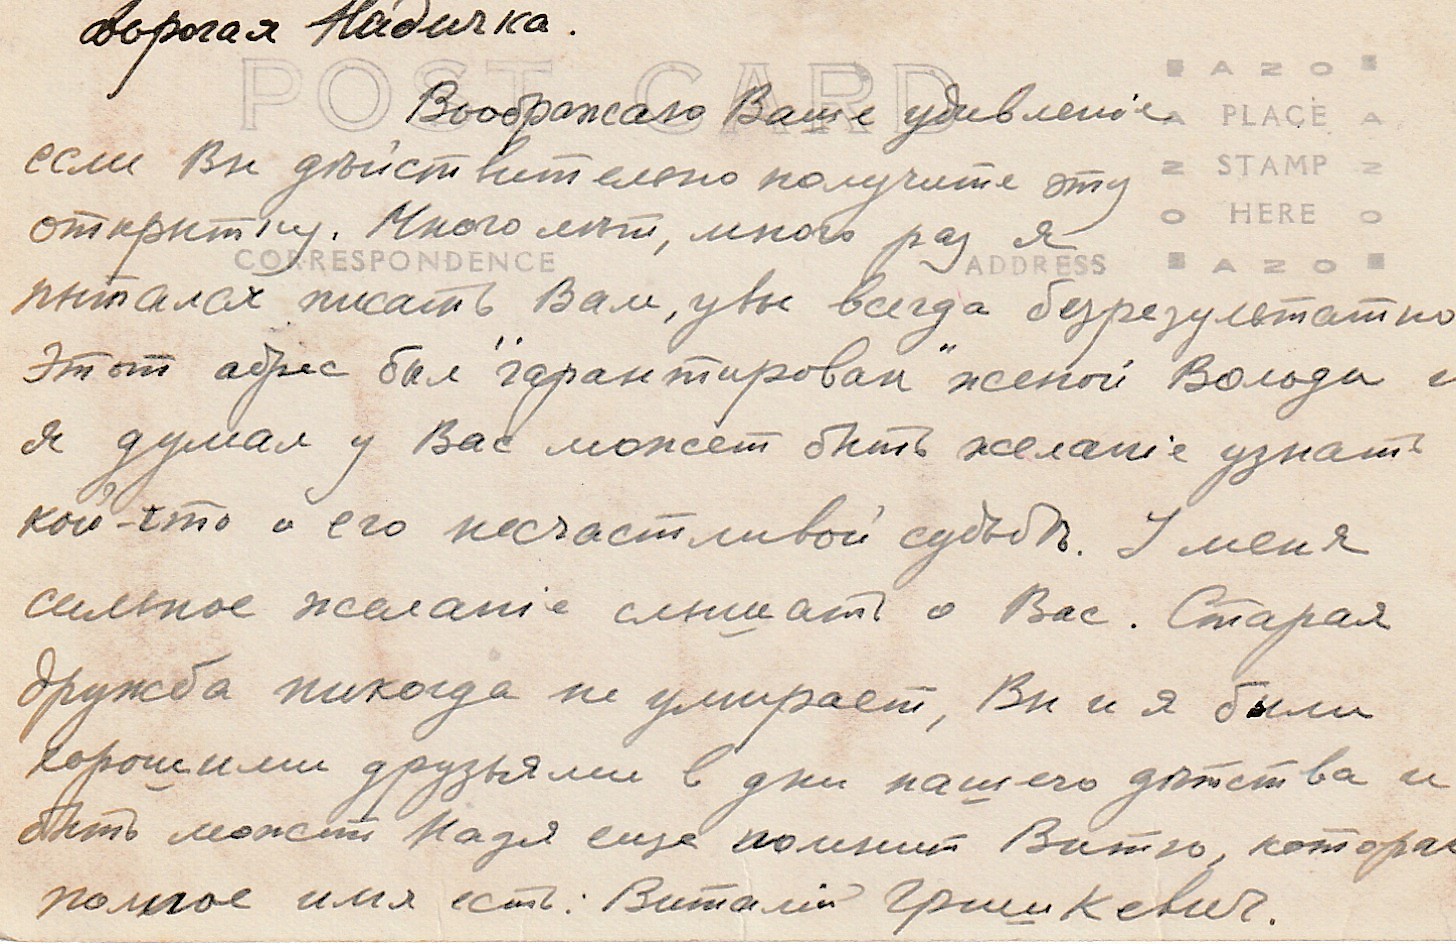 дорогая Надичка.
POST CARD
Воображаю Ваше удивленіе
если Вы дѣйствително получите эту
открытку. Много лѣт, много раз я
пытался писать Вам, увы всегда безрезультатно
Этот адрес был "гарантирован" женой Володи и
я думал у Вас может быть желаніе узнать
кой-что о его несчастливой судьбѣ. У меня
сильное желаніе слышать о Вас. Старая
дружба никогда не умирает, Вы и я были
хорошими друзьями в дни нашего дѣтства и
быть может Надя еще помнит Витю, котораг
полное имя есть: Виталій Гришкевич.
CORRESPONDENCE
ADDRESS
AZO
PLACE
STAMP
HERE
AZO